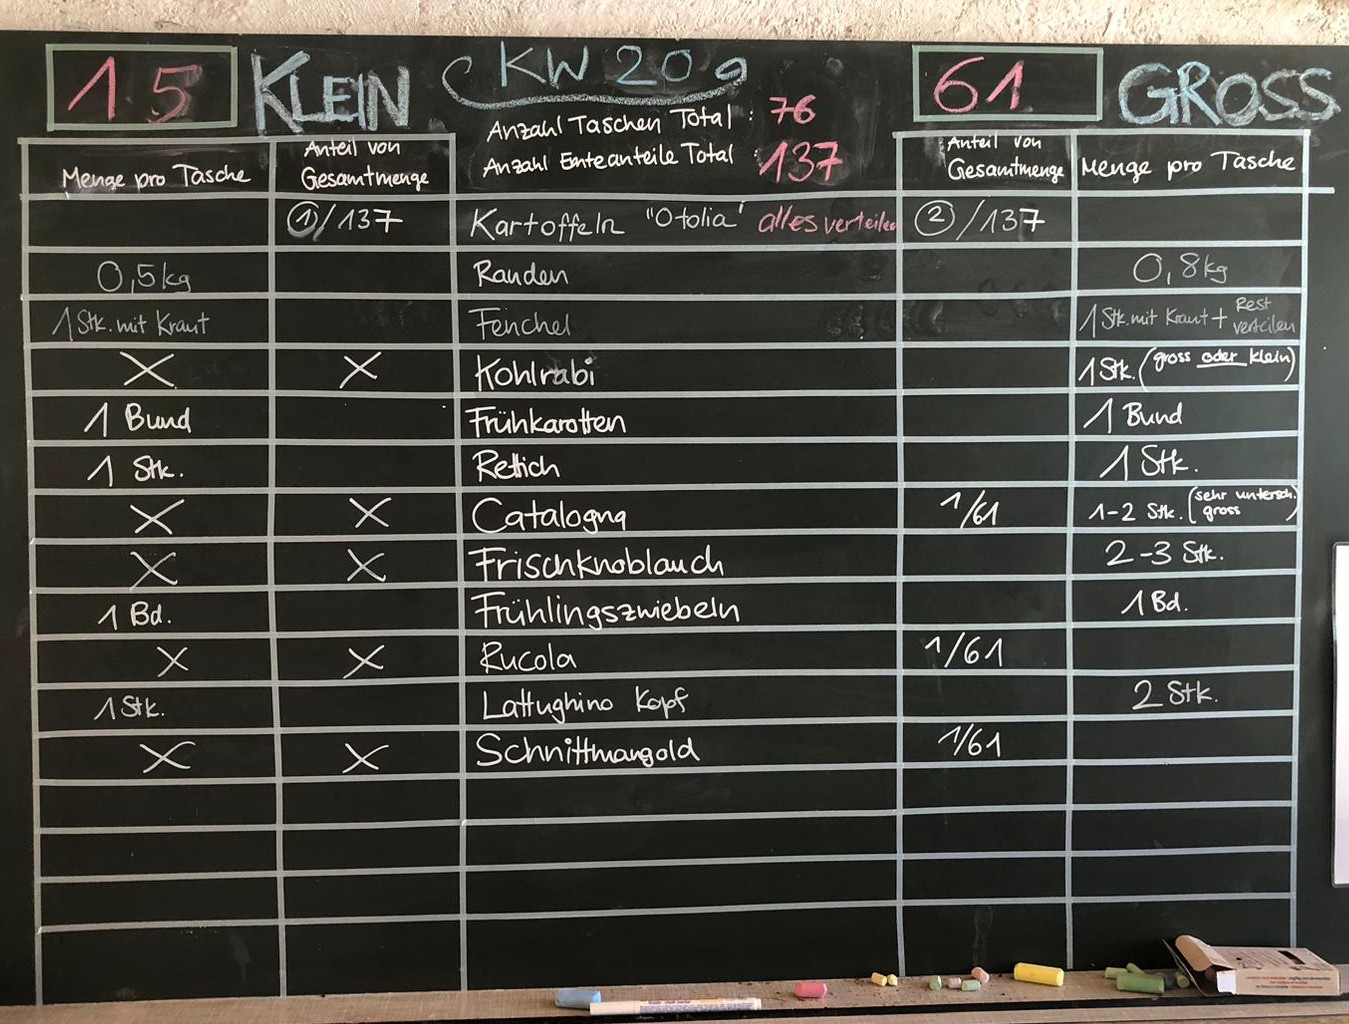 15 KLEIN
KW 20 a
61 GROSS
Anzahl Taschen Total : 76
Anzahl Ernteanteile Total 137
Menge pro Tasche
Anteil von
Gesamtmenge
Anteil von
Gesamtmenge
Menge pro Tasche
1/137 Kartoffeln "Otolia" alles verteilen 2/137
0,5kg Randen 0,8kg
1 Stk. mit Kraut Fenchel 1 Stk. mit Kraut + Rest
verteilen
X X Kohlrabi 1 Stk. (gross oder klein)
1 Bund Frühkarotten 1 Bund
1 Stk. Rettich 1 Stk.
X X Catalogna 1/61 1-2 Stk. (sehr untersch.
gross)
X X Frischknoblauch 2-3 Stk.
1 Bd. Frühlingszwiebeln 1 Bd.
X X Rucola 1/61
1 Stk. Lattughino Kopf 2 Stk.
X X Schnittmangold 1/61